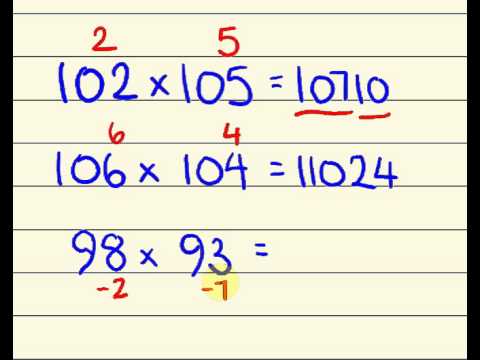 2 5
102 × 105 = 10710
6 4
106 × 104 = 11024
98 × 93 =
-2 -7